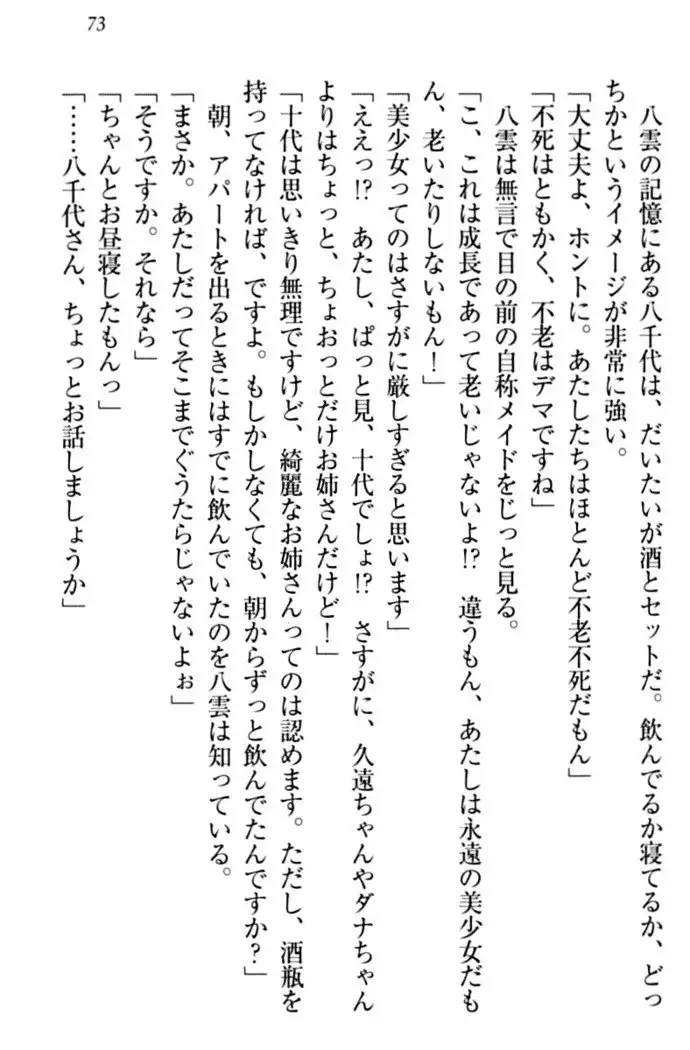 73
八雲の記憶にある八千代は、だいたいが酒とセットだ。飲んでるか寝てるか、どっ
ちかというイメージが非常に強い。
「大丈夫よ、ホントに。あたしたちはほとんど不老不死だもん」
「不死はともかく、不老はデマですね」
八雲は無言で目の前の自称メイドをじっと見る。
「こ、これは成長であって老いじゃないよ!?　違うもん、あたしは永遠の美少女だも
ん、老いたりしないもん！」
「美少女ってのはさすがに厳しすぎると思います」
「ええっ!?　あたし、ぱっと見、十代でしょ!?　さすがに、久遠ちゃんやダナちゃん
よりはちょっと、ちょおっとだけお姉さんだけど！」
「十代は思いきり無理ですけど、綺麗なお姉さんってのは認めます。ただし、酒瓶を
持ってなければ、ですよ。もしかしなくても、朝からずっと飲んでたんですか？」
朝、アパートを出るときにはすでに飲んでいたのを八雲は知っている。
「まさか。あたしだってそこまでぐうたらじゃないよぉ」
「そうですか。それなら」
「ちゃんとお昼寝したもんっ」
「……八千代さん、ちょっとお話しましょうか」